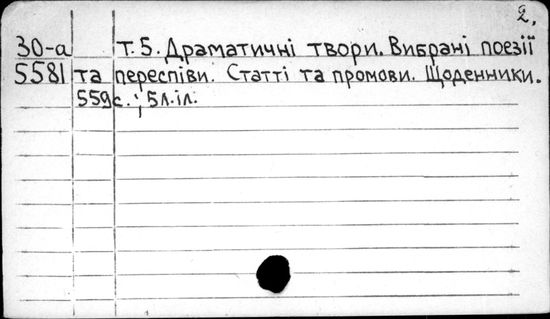 2.
30-а Т. 5. Драматичні твори. Вибрані поезії
5581 та переспіви. Статті та промови. Щоденники.
559с.; 5л.іл.